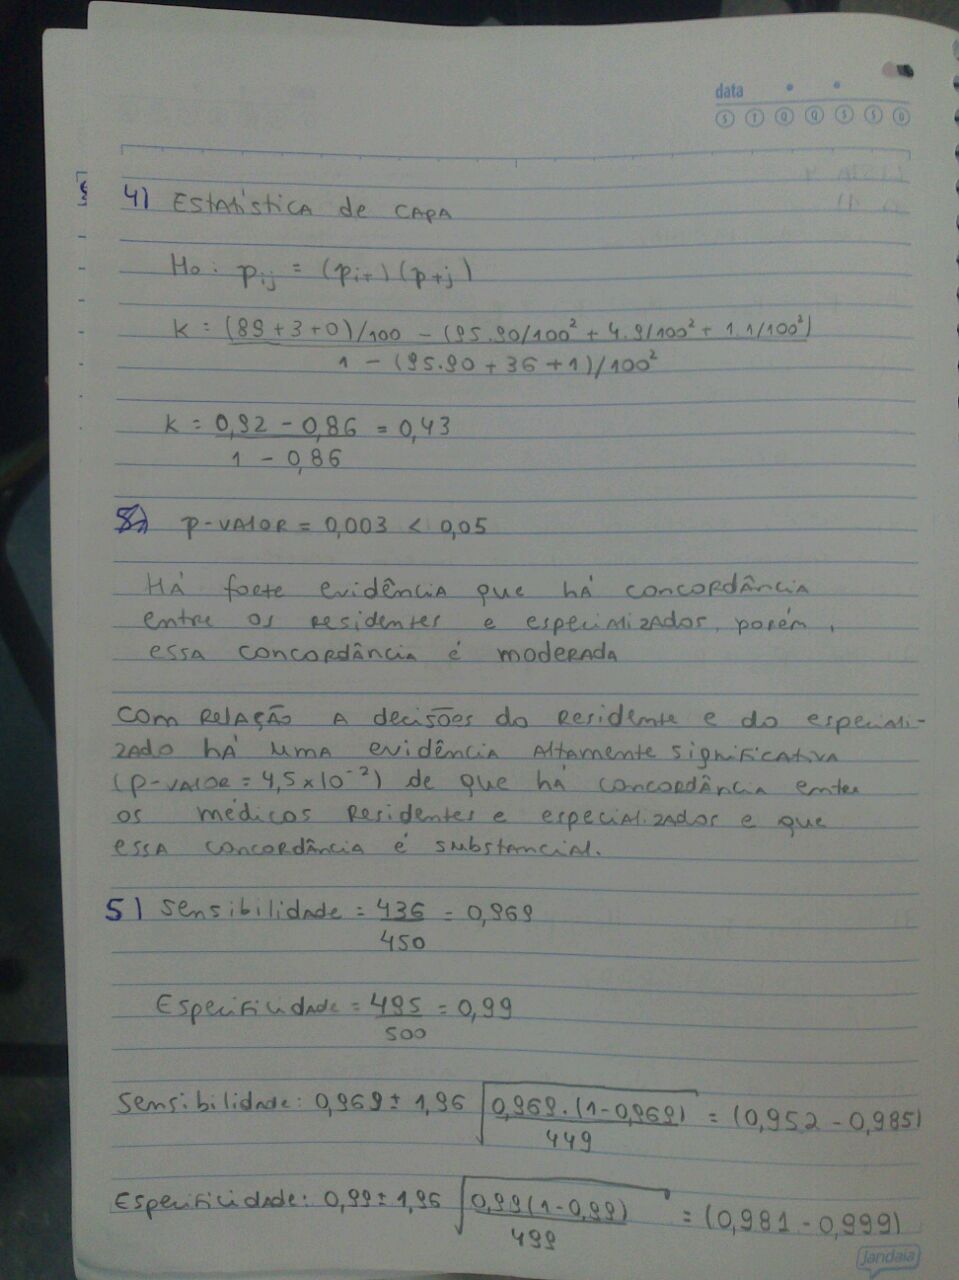 data
S T Q Q S S D
4) Estatística de CAPA
H0: pij = (pi+)(p+j)
k = (89+3+0)/100 - (95.90/100² + 4.9/100² + 1.1/100²)
1 - (95.90 + 36 + 1)/100²
k = 0,92 - 0,86 = 0,43
1 - 0,86
p-valor = 0,003 < 0,05
Há forte evidência que há concordância
entre os residentes e especializados, porém,
essa concordância é moderada
Com relação a decisões do residente e do especiali-
zado há uma evidência altamente significativa
(p-valor = 4,5 x 10⁻²) de que há concordância entre
os médicos residentes e especializados e que
essa concordância é substancial.
5) Sensibilidade = 436 = 0,969
450
Especificidade = 495 = 0,99
500
Sensibilidade: 0,969 ± 1,96 √ 0,969.(1-0,969) = (0,952 - 0,985)
449
Especificidade: 0,99 ± 1,96 √ 0,99(1-0,99) = (0,981 - 0,999)
499
jandaia